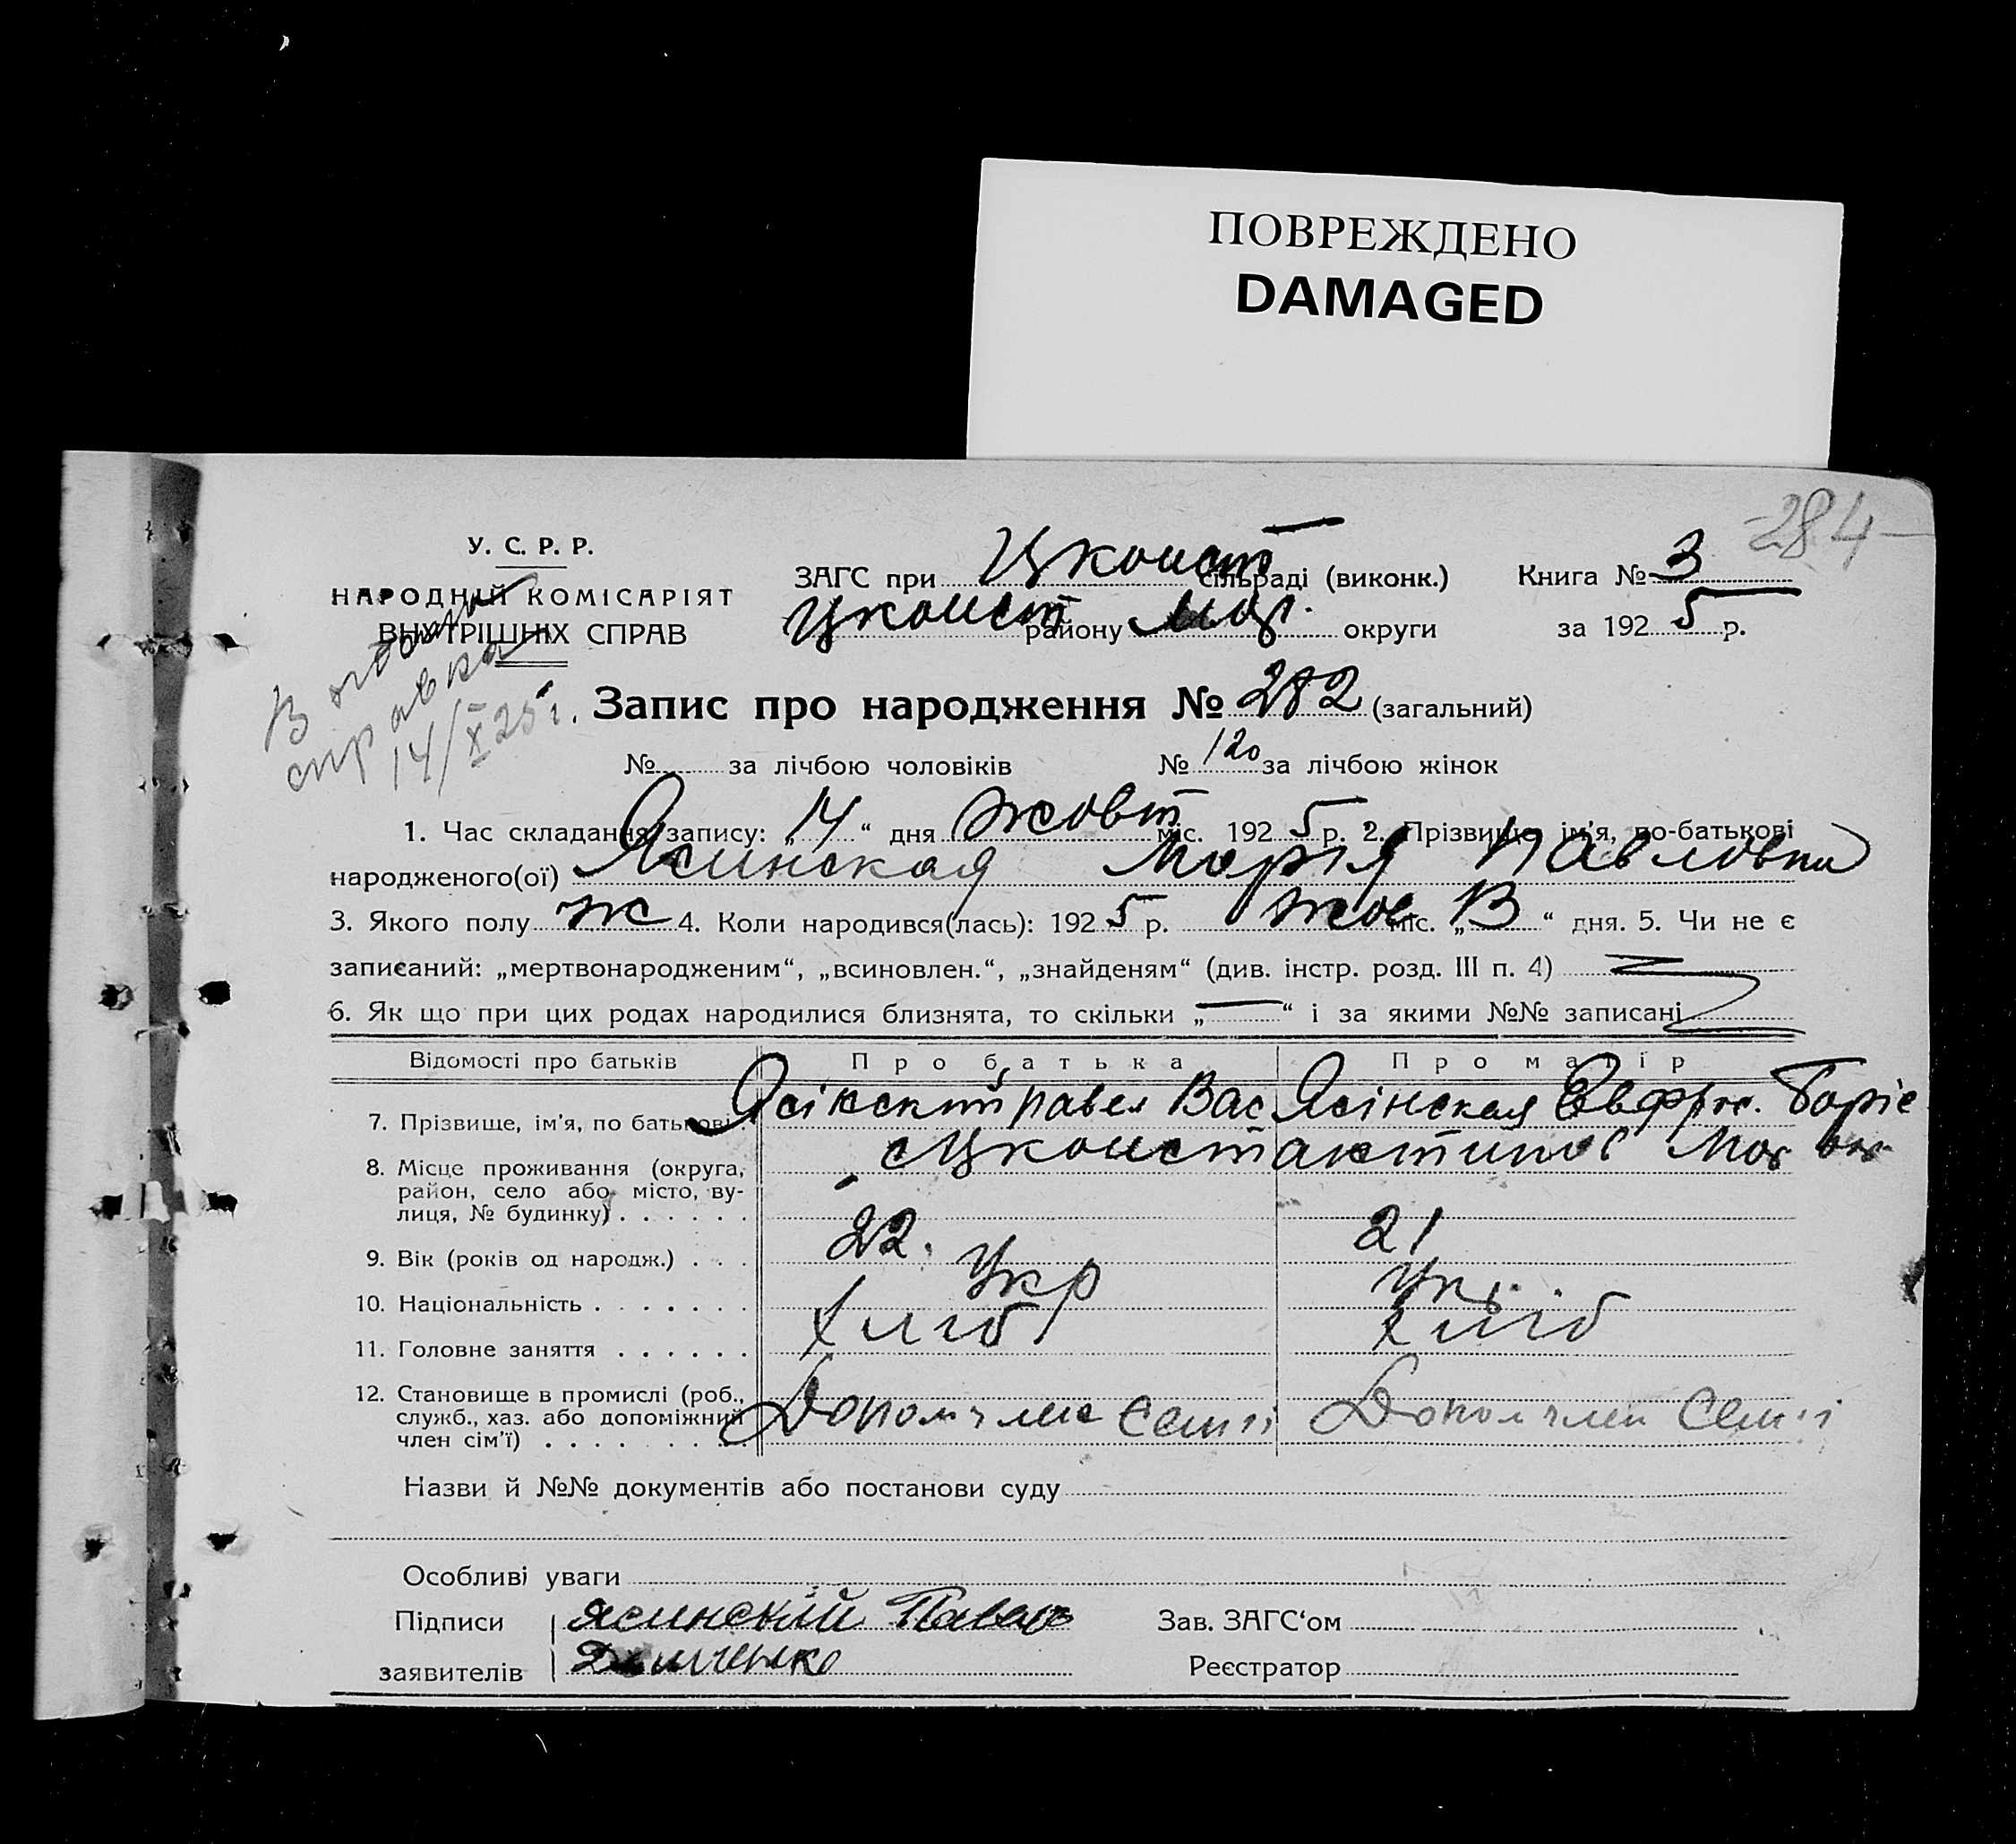 ПОВРЕЖДЕНО
DAMAGED
284
У. С. Р. Р.
НАРОДНІЙ КОМІСАРІЯТ
ВНУТРІШНІХ СПРАВ
ЗАГС при Цконст сільраді (виконк.) Книга № 3
Цконст району округи за 1925 р.
справка
14/X 25 г.
Запис про народження № 282 (загальний)
№ за лічбою чоловіків № 120 за лічбою жінок
1. Час складання запису: „14“ дня жовт міс. 1925 р. 2. Прізвище, ім’я, по-батькові
народженого(ої) Ясинская Марія Павловна
3. Якого полу ж 4. Коли народився(лась): 1925 р. жов міс. „13“ дня. 5. Чи не є
записаний: „мертвонародженим“, „всиновлен.“, „знайденям“ (див. інстр. розд. III п. 4)
6. Як що при цих родах народилися близнята, то скільки „—“ і за якими №№ записані
Відомості про батьків Про батька Про матір
7. Прізвище, ім’я, по батькові Ясінский Павел Вас Ясінская Евфрос. Боріс
8. Місце проживання (округа,
район, село або місто, ву-
лиця, № будинку) . . . . . .
9. Вік (років од народж.) . . . 22. 21
10. Національність . . . . . . . Укр Укр.
11. Головне заняття . . . . . . Хліб Хліб
12. Становище в промислі (роб.,
служб., хаз. або допоміжний
член сім’ї) . . . . . . . . Допом член семіі Допом член семіі
Назви й №№ документів або постанови суду
Особливі уваги
Підписи Ясинскій Павел Зав. ЗАГС‘ом
заявителів Реєстратор